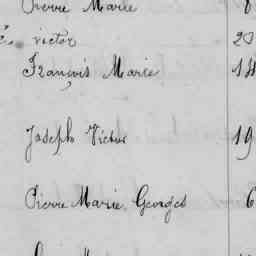 Pierre Marie 8
victor 20
François Marie 14
Joseph Victor 19
Pierre Marie Georges 6